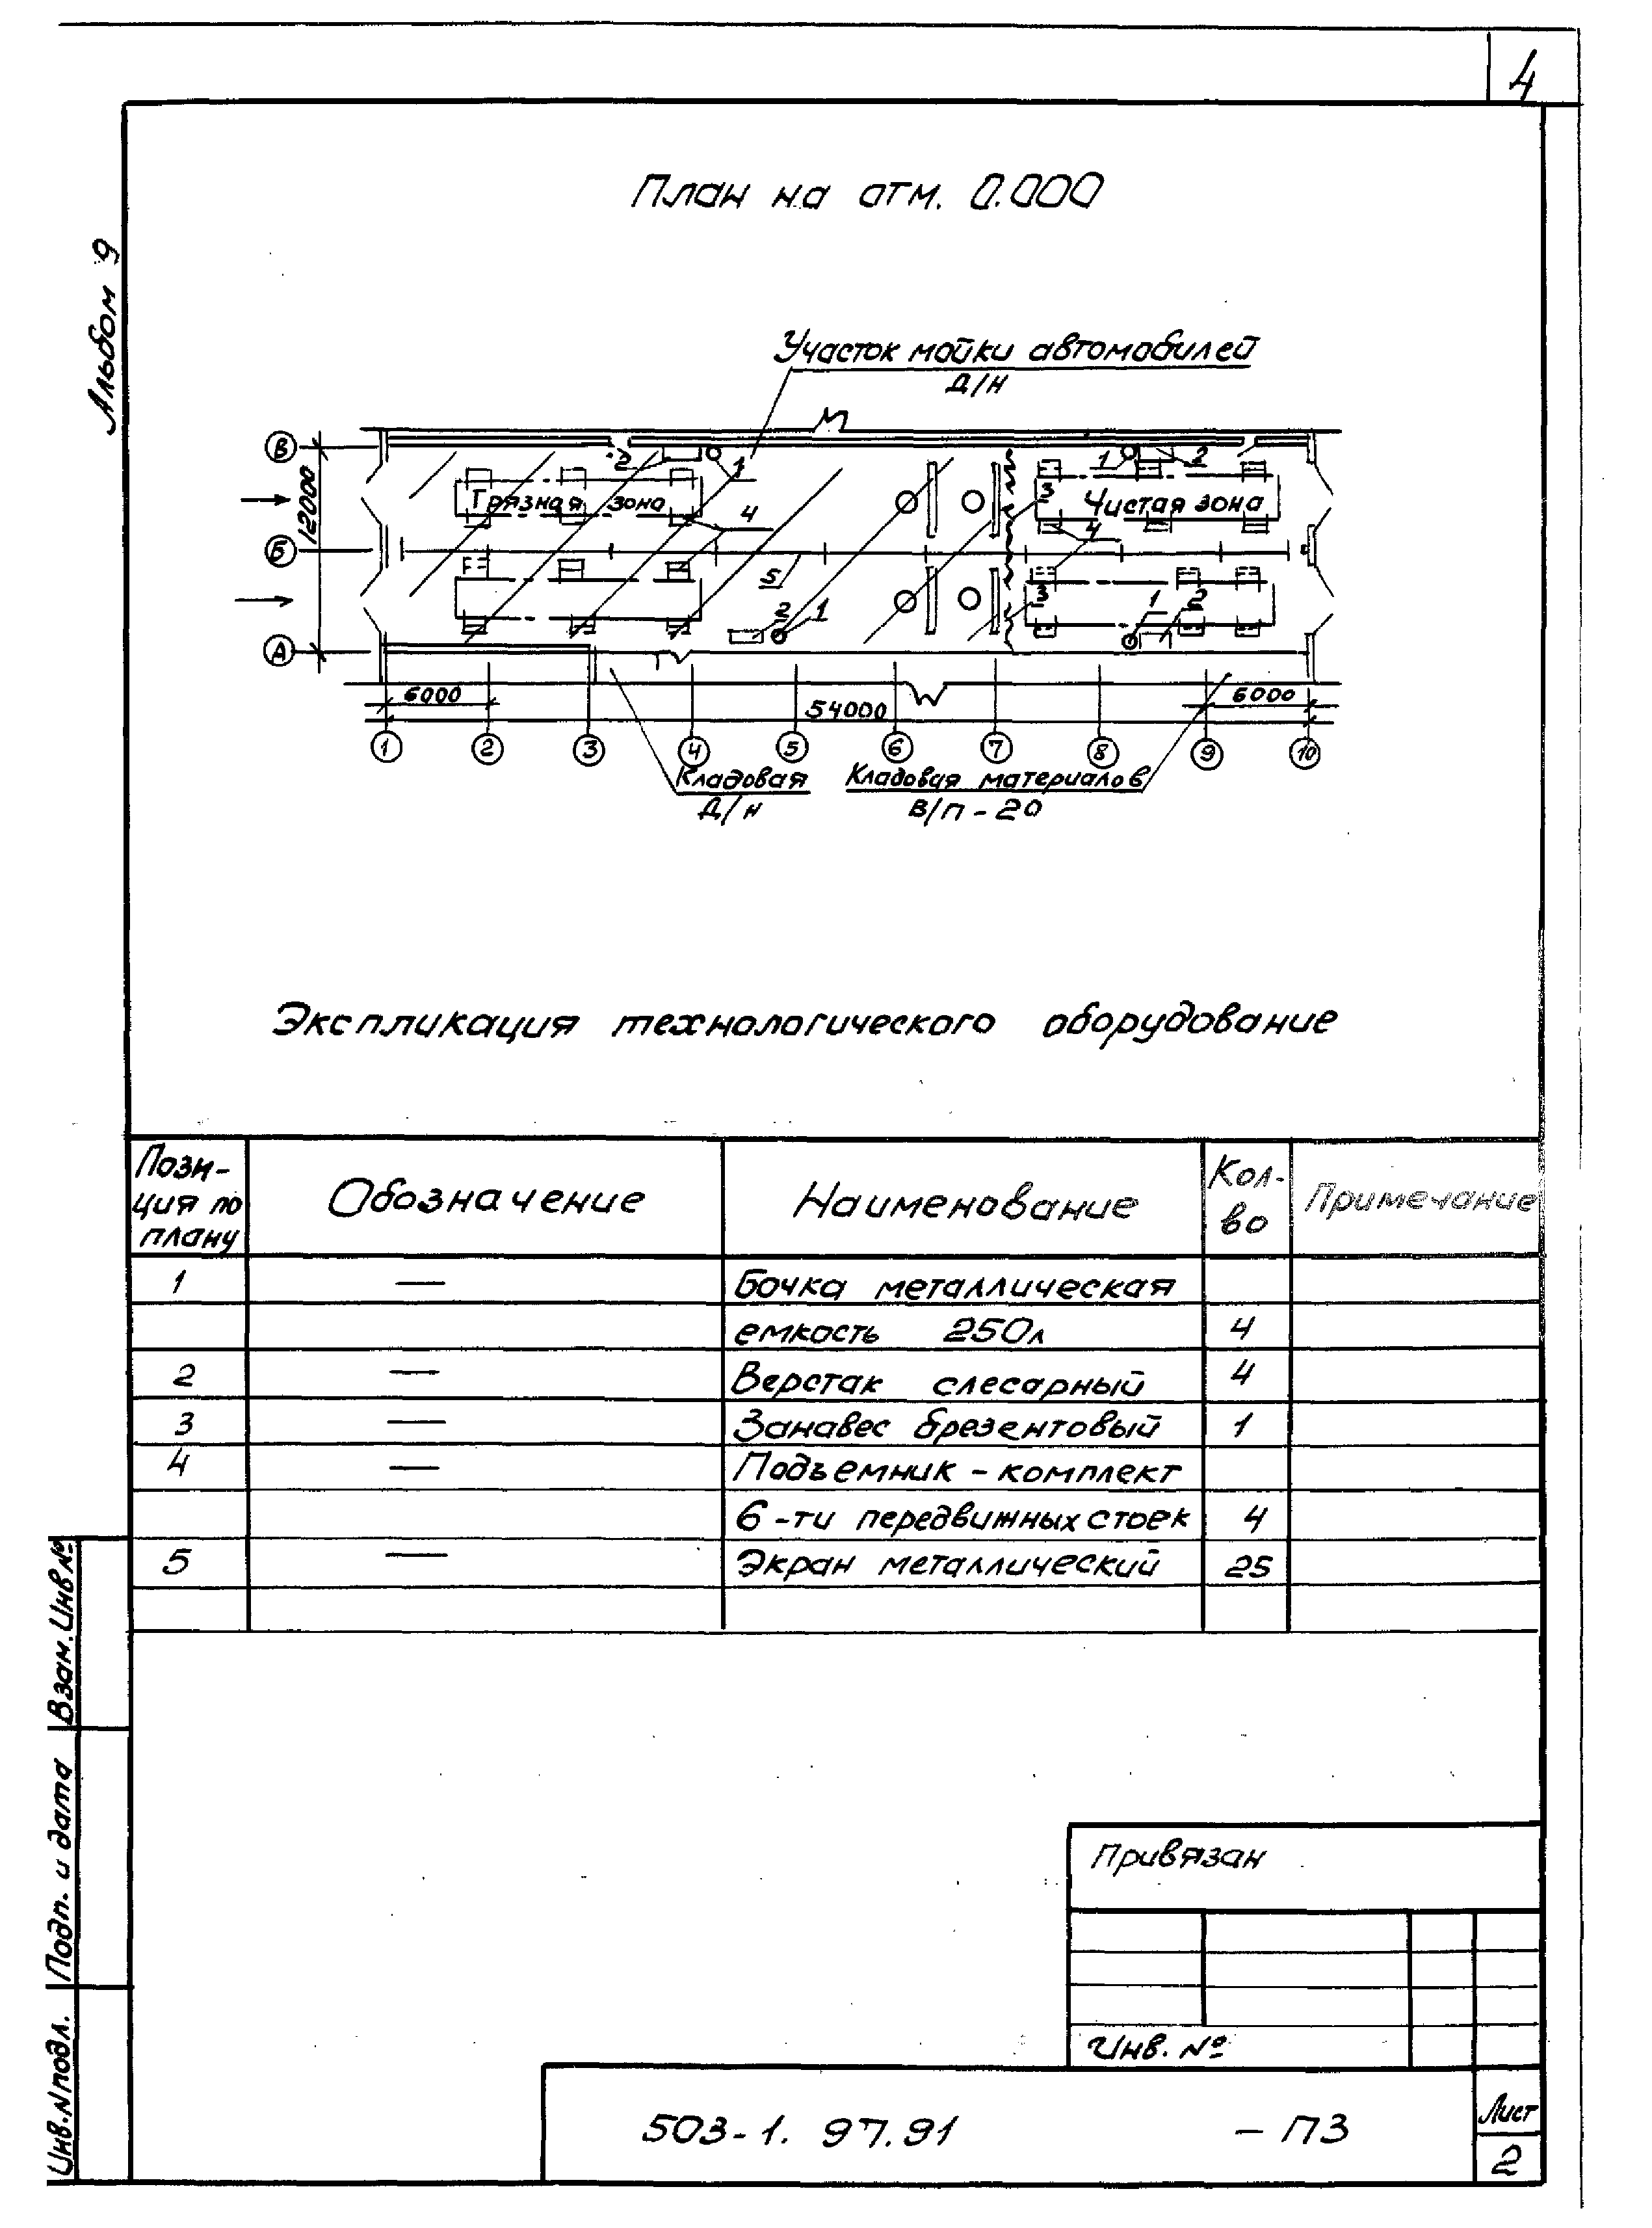 4
Альбом 9
План на отм. 0.000
Участок мойки автомобилей
Д/Н
В
2
1
1
2
12000
Грязная зона
4
3
Чистая зона
4
Б
5
3
2
1
1
2
А
6000
54000
6000
1
2
3
4
5
6
7
8
9
10
Кладовая
Д/Н
Кладовая материалов
В/П-20
Экспликация технологического оборудование
Пози-
ция по
плану
Обозначение
Наименование
Кол-
во
Примечание
1 — Бочка металлическая
емкость 250л 4
2 — Верстак слесарный 4
3 — Занавес брезентовый 1
4 — Подъемник - комплект
6-ти передвижных стоек 4
5 — Экран металлический 25
Взам. Инв №
Подп. и дата
Инв. N подл.
Привязан
Инв. №
503-1. 97.91 - ПЗ
Лист
2